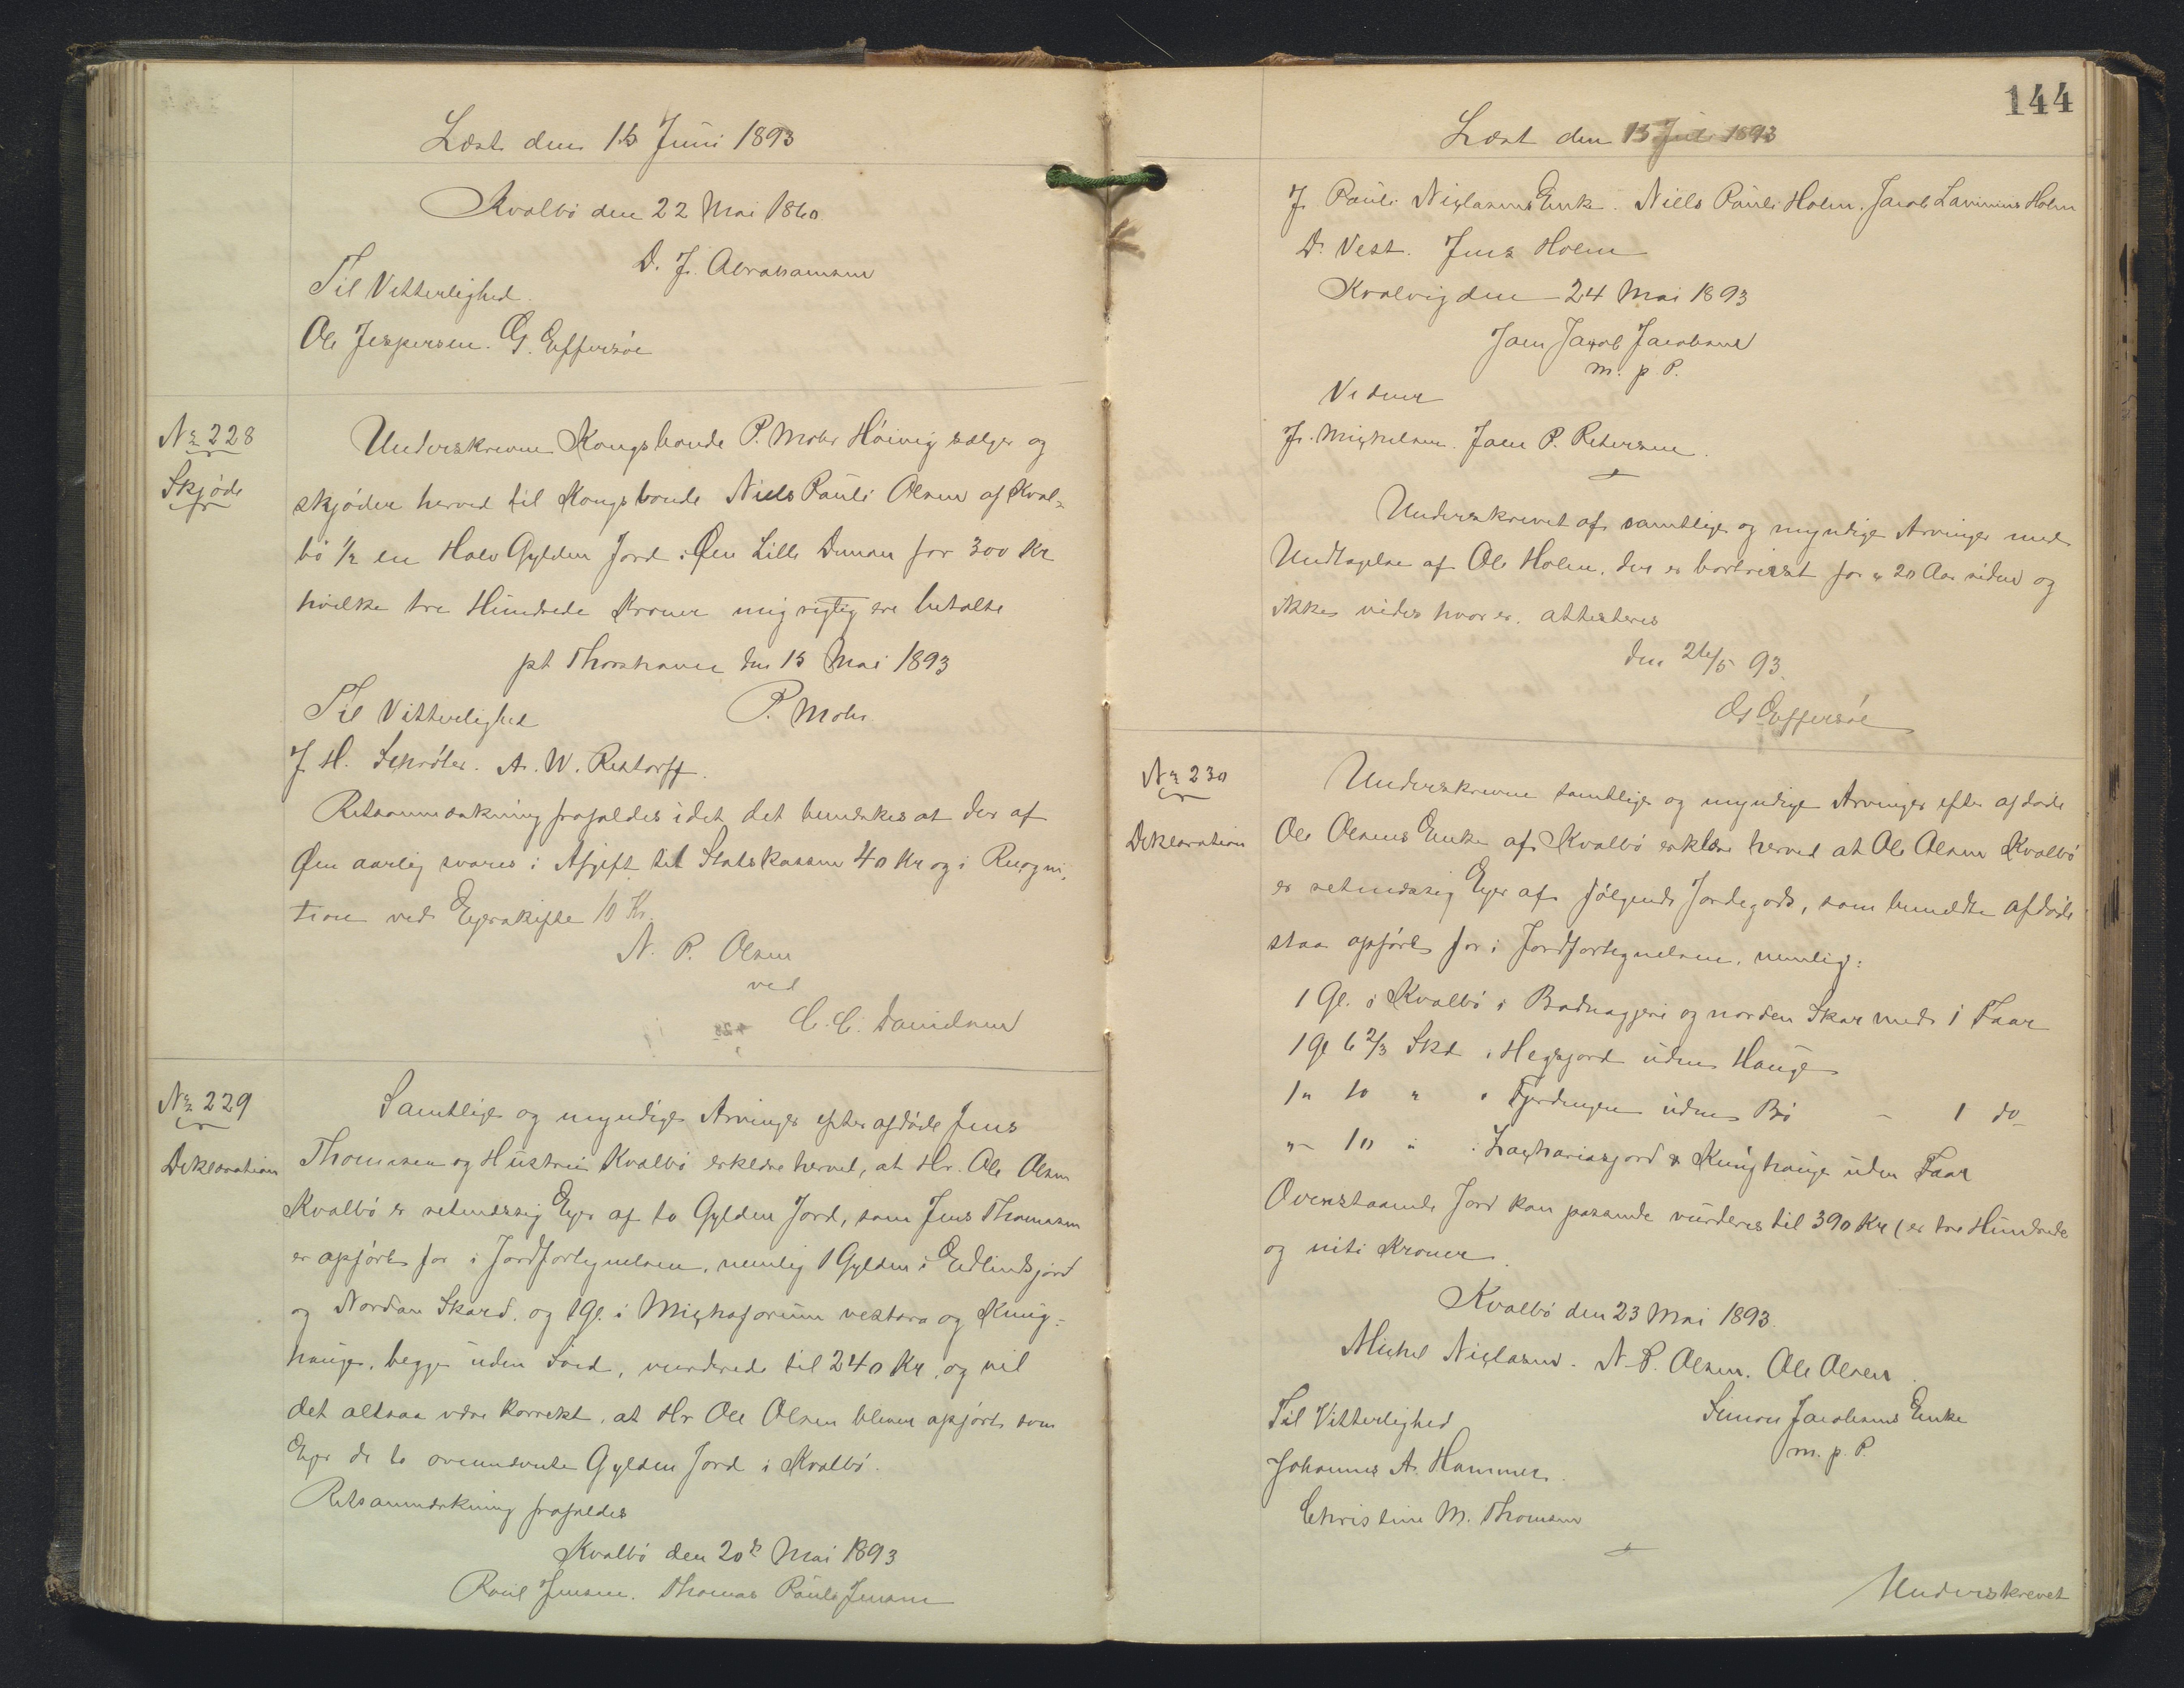 Læst den 15 Juni 1893
Kvalbø den 22 Mai 1860
D. J. Abrahamsen
Til Vitterlighed.
Ole Jespersen. G. Effersøe
No 228
Skjøde
Underskrevne Kongsbonde P. Mohr Høivig sælger og
skjøder herved til Kongsbonde Niels Pauli Olsen af Kval-
bø ½ en Halv Gylden Jord i Øen Lille Dimon for 300 Kr
hvilke tre Hundrede Kroner mig rigtig ere betalte
pt Thorshavn den 15 Mai 1893
Til Vitterlighed P. Mohr.
J. H. Schrøter. A. W. Restorff.
Retsanmærkning frafaldes idet det bemærkes at der af
Øen aarlig svares i Afgift til Statskassen 40 Kr og i Recogni-
tion ved Eierskifte 10 Kr.
N. P. Olsen
ved
C. C. Danielsen
No 229
Deklaration
Samtlige og myndige Arvinger efter afdøde Jens
Thomasen og Hustru Kvalbø erklære herved, at Hr. Ole Olsen
Kvalbø er retmæssig Eyer af to Gylden Jord, som Jens Thomasen
er opført for i Jordfortegnelsen, nemlig 1 Gylden i Erlindsjord
og Nordan Skard, og 1 Gl. i Michaforum vestara og Kung-
hauge, begge uden Sæd, vurderede til 240 Kr, og vil
det altsaa være korrekt, at Hr Ole Olsen bliver opført som
Eyer de to ovennævnte Gylden Jord i Kvalbø.
Retsanmærkning frafaldes
Kvalbø den 20de Mai 1893
Poul Jensen. Thomas Pauli Jensen
144
Læst den 15 Juni 1893
J. Pauli Niclasens Enke. Niels Pauli Holm. Jacob Lavinus Holm
D. Vest. Jens Holm
Kvalvig den 24 Mai 1893
Joen Jacob Jacobsen
m. p. P.
Vidner
J. Michelsen. Joen P. Petersen.
Underskrevet af samtlige og myndige Arvinger med
Undtagelse af Ole Holm, der er bortreist for c 20 Aar siden og
ikke vides hvor er. attesteres
den 26/5 93.
G Effersøe
No 230
Deklaration
Underskrevne samtlige og myndige Arvinger efter afdøde
Ole Olsens Enke af Kvalbø erklære herved at Ole Olsen Kvalbø
er retmæssig Eyer af følgende Jordegods, som bemeldte afdøde
staa opført for i Jordfortegnelsen, nemlig:
1 Gl. i Kvalbø i Badnagjeri og norden Skar med 1 Faar
1 Gl 6 2/3 Skd i Hegsgord uden Hauge
1 " 10 " i Fjerdingen uden Bø - 1 do
" - 10 " i Zachariasgord & Kunghauge uden Faar
Ovenstaaende Jord kan passende vurderes til 390 Kr (er tre Hundrede
og niti Kroner.
Kvalbø den 23 Mai 1893.
Michel Niclasen. N. P. Olsen. Ole Olsen.
Til Vitterlighed Simon Jacobsens Enke
Johannes A. Hammer. m. p. P.
Christine M. Thomsen
Underskrevet